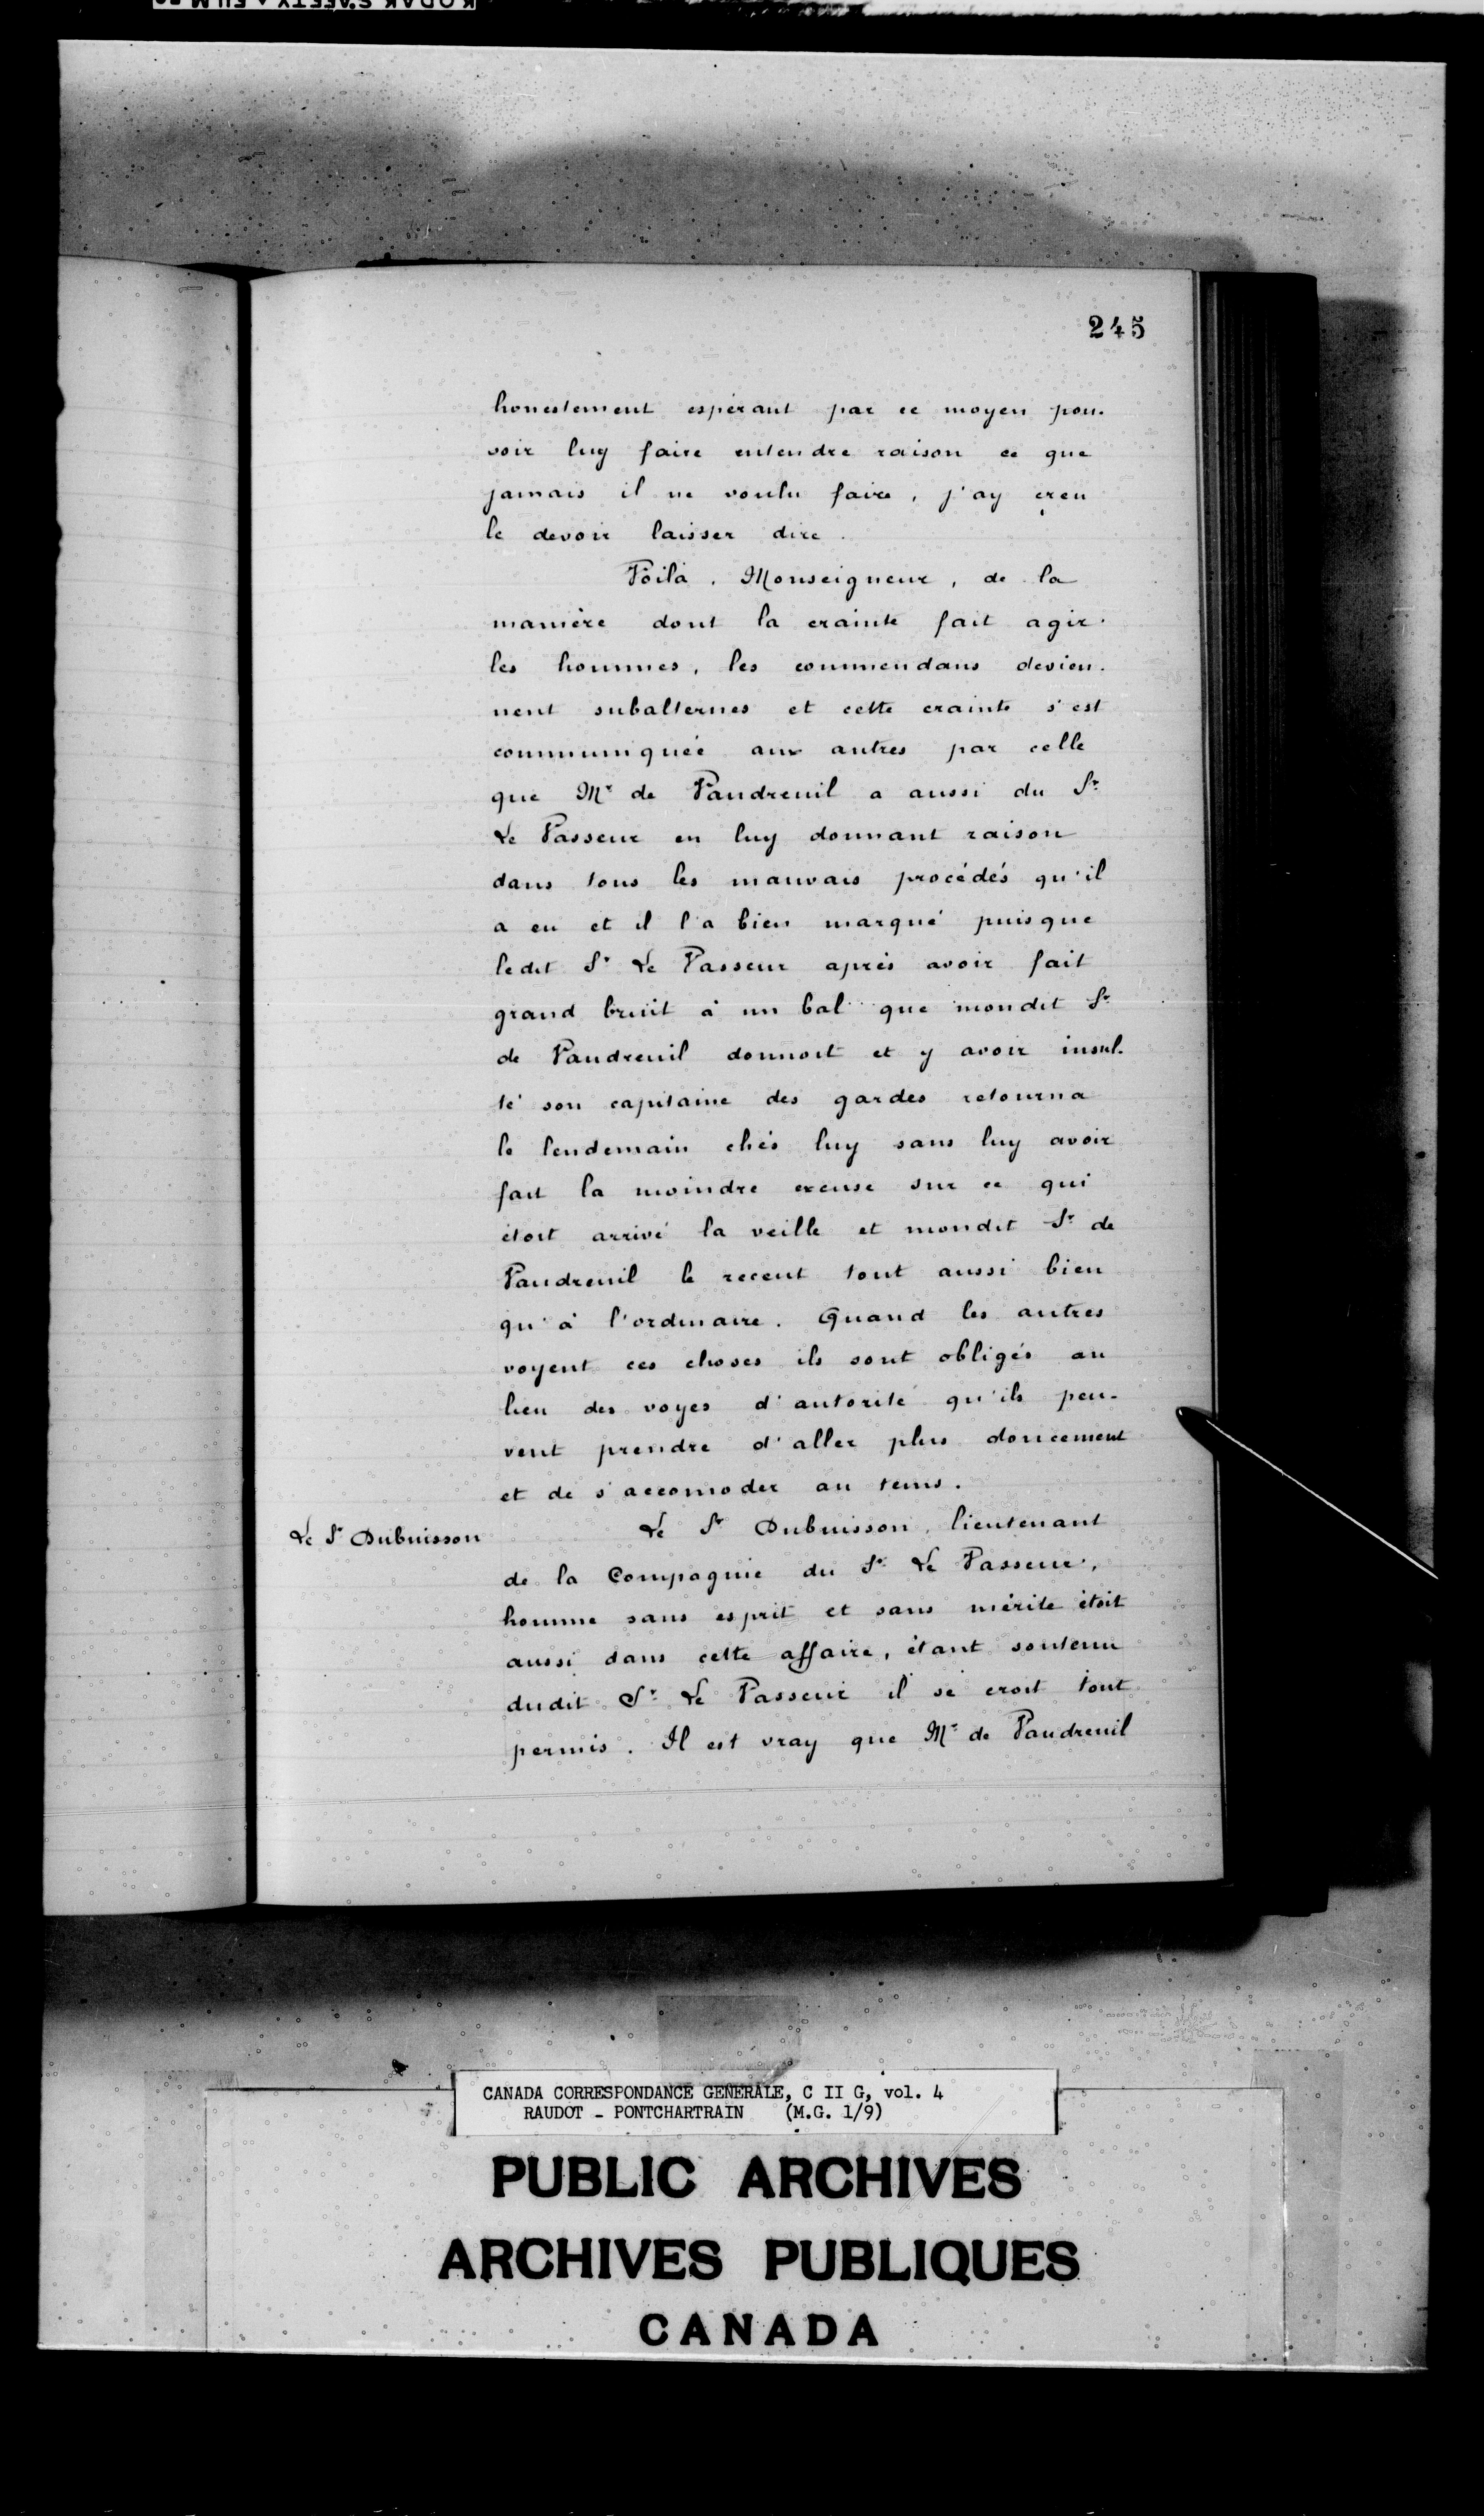 KODAK SAFETY FILM
245
honestement espérant par ce moyen pou-
voir luy faire entendre raison ce que
jamais il ne voulu faire, j'ay creu
le devoir laisser dire.
Voilà, Monseigneur, de la
manière dont la crainte fait agir
les hommes, les commendans devien-
nent subalternes et cette crainte s'est
communiquée aux autres par celle
que Mr de Vaudreuil a aussi du Sr
Le Vasseur en luy donnant raison
dans tous les mauvais procédés qu'il
a eu et il l'a bien marqué puisque
ledit Sr Le Vasseur après avoir fait
grand bruit à un bal que mondit Sr
de Vaudreuil donnoit et y avoir insul-
té son capitaine des gardes retourna
le lendemain chés luy sans luy avoir
fait la moindre excuse sur ce qui
étoit arrivé la veille et mondit Sr de
Vaudreuil le receut tout aussi bien
qu'à l'ordinaire. Quand les autres
voyent ces choses ils sont obligés au
lieu des voyes d'autorité qu'ils peu-
vent prendre d'aller plus doucement
et de s'accomoder au tems.
Le Sr Dubuisson
Le Sr Dubuisson, lieutenant
de la Compagnie du Sr Le Vasseur,
homme sans esprit et sans mérite étoit
aussi dans cette affaire, étant soutenu
dudit Sr Le Vasseur il se croit tout
permis. Il est vray que Mr de Vaudreuil
CANADA CORRESPONDANCE GENERALE, C II G, vol. 4
RAUDOT - PONTCHARTRAIN (M.G. 1/9)
PUBLIC ARCHIVES
ARCHIVES PUBLIQUES
CANADA